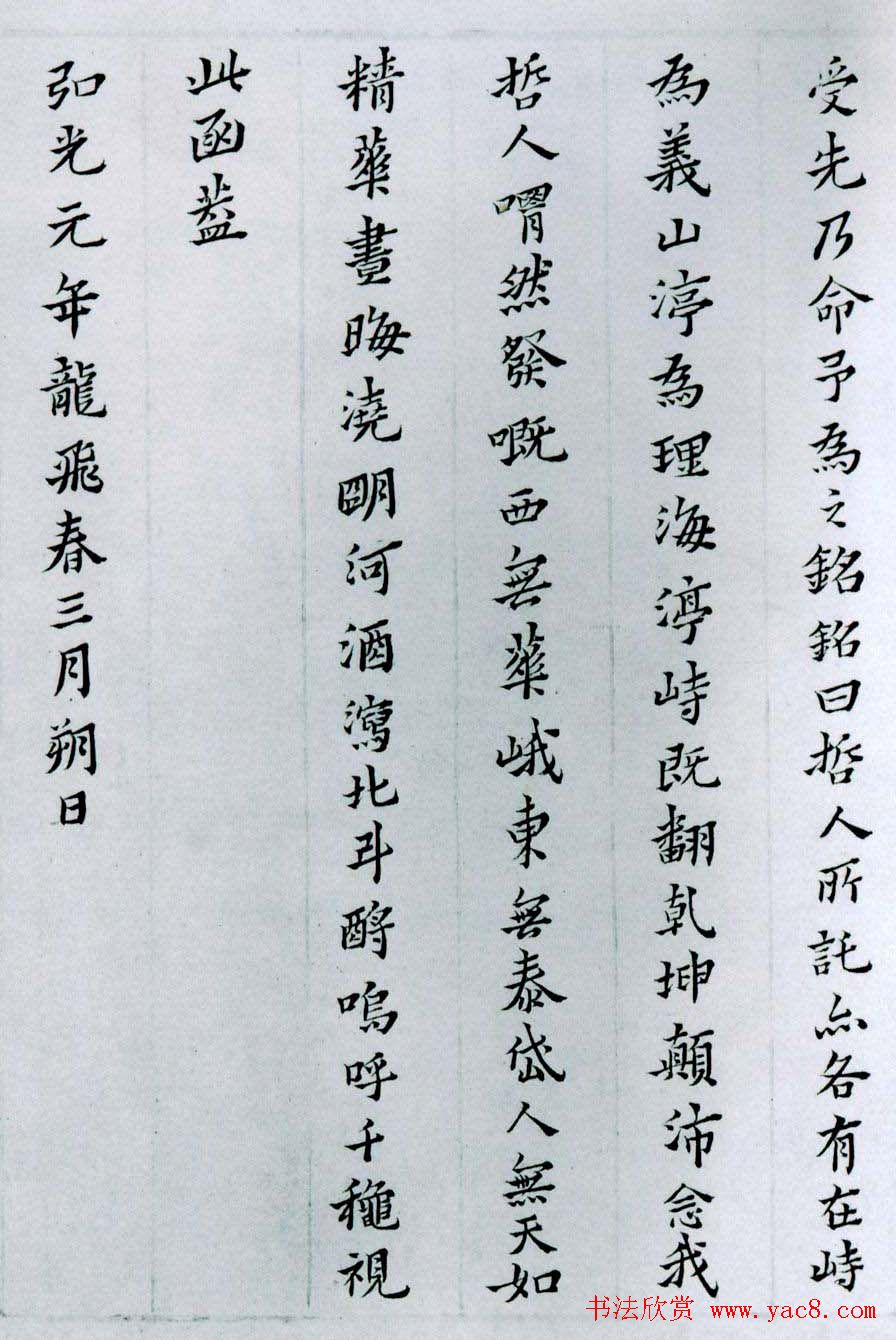 受先乃命予為之銘銘曰哲人所託亦各有在峙
為義山渟為理海渟峙既翻乾坤顛沛念我
哲人喟然發嘅西無華峨東無泰岱人無天如
精華晝晦澆朙河酒瀉北斗酹嗚呼千龝視
此函蓋
弘光元年龍飛春三月朔日
书法欣赏 www.yac8.com